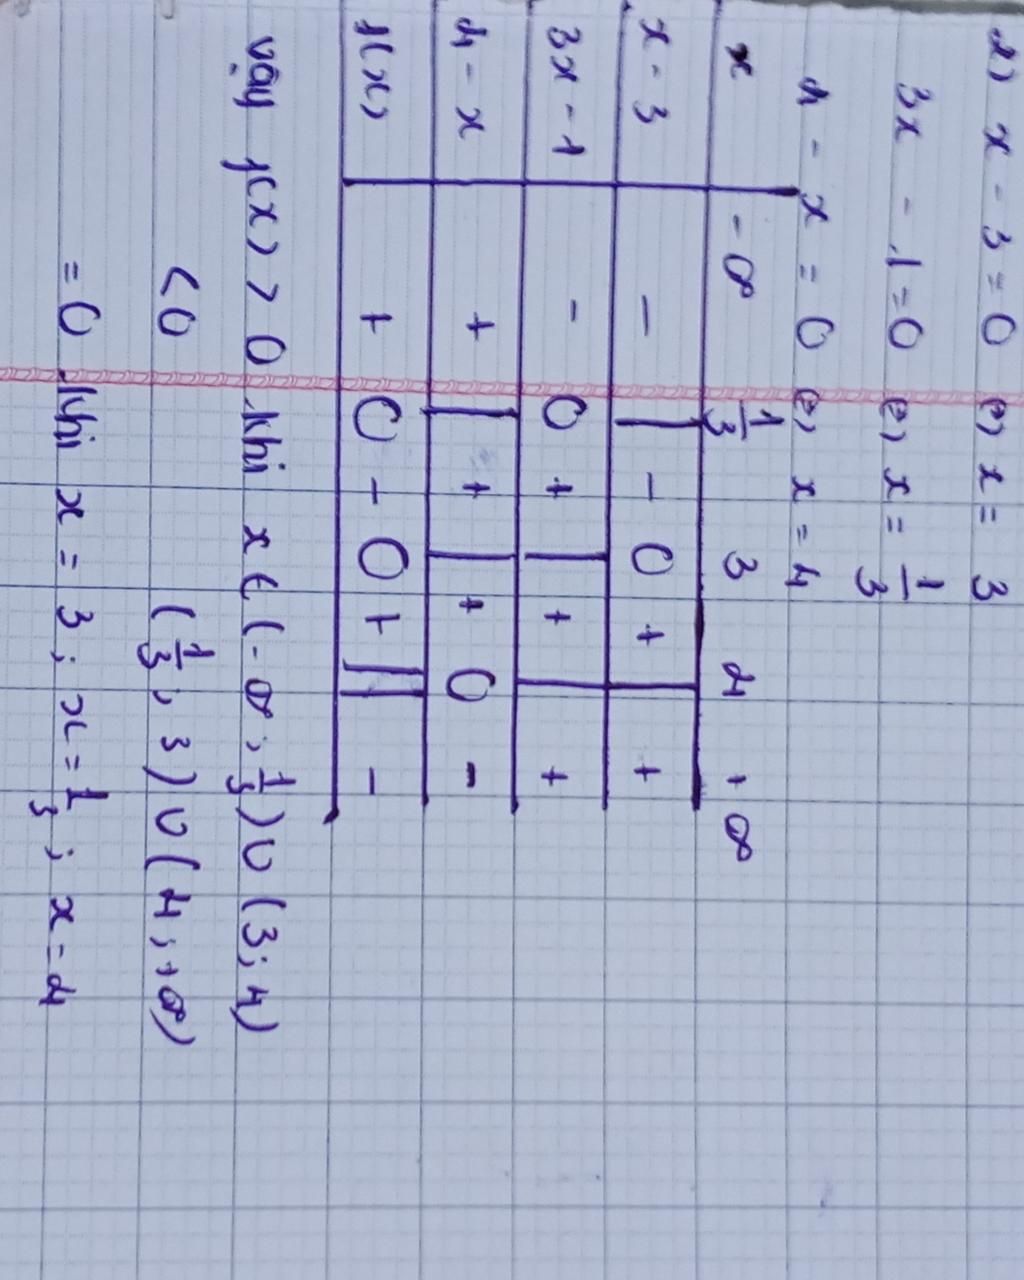 2) x - 3 = 0 (=) x = 3
3x - 1 = 0 (=) x = 1/3
4 - x = 0 (=) x = 4
x -∞ 1/3 3 4 +∞
x - 3 - | - 0 + | +
3x - 1 - 0 + | + | +
4 - x + | + | + 0 -
f(x) + 0 - 0 + || -
Vậy f(x) > 0 khi x ∈ (-∞; 1/3) ∪ (3; 4)
< 0 (1/3; 3) ∪ (4; +∞)
= 0 khi x = 3; x = 1/3; x = 4